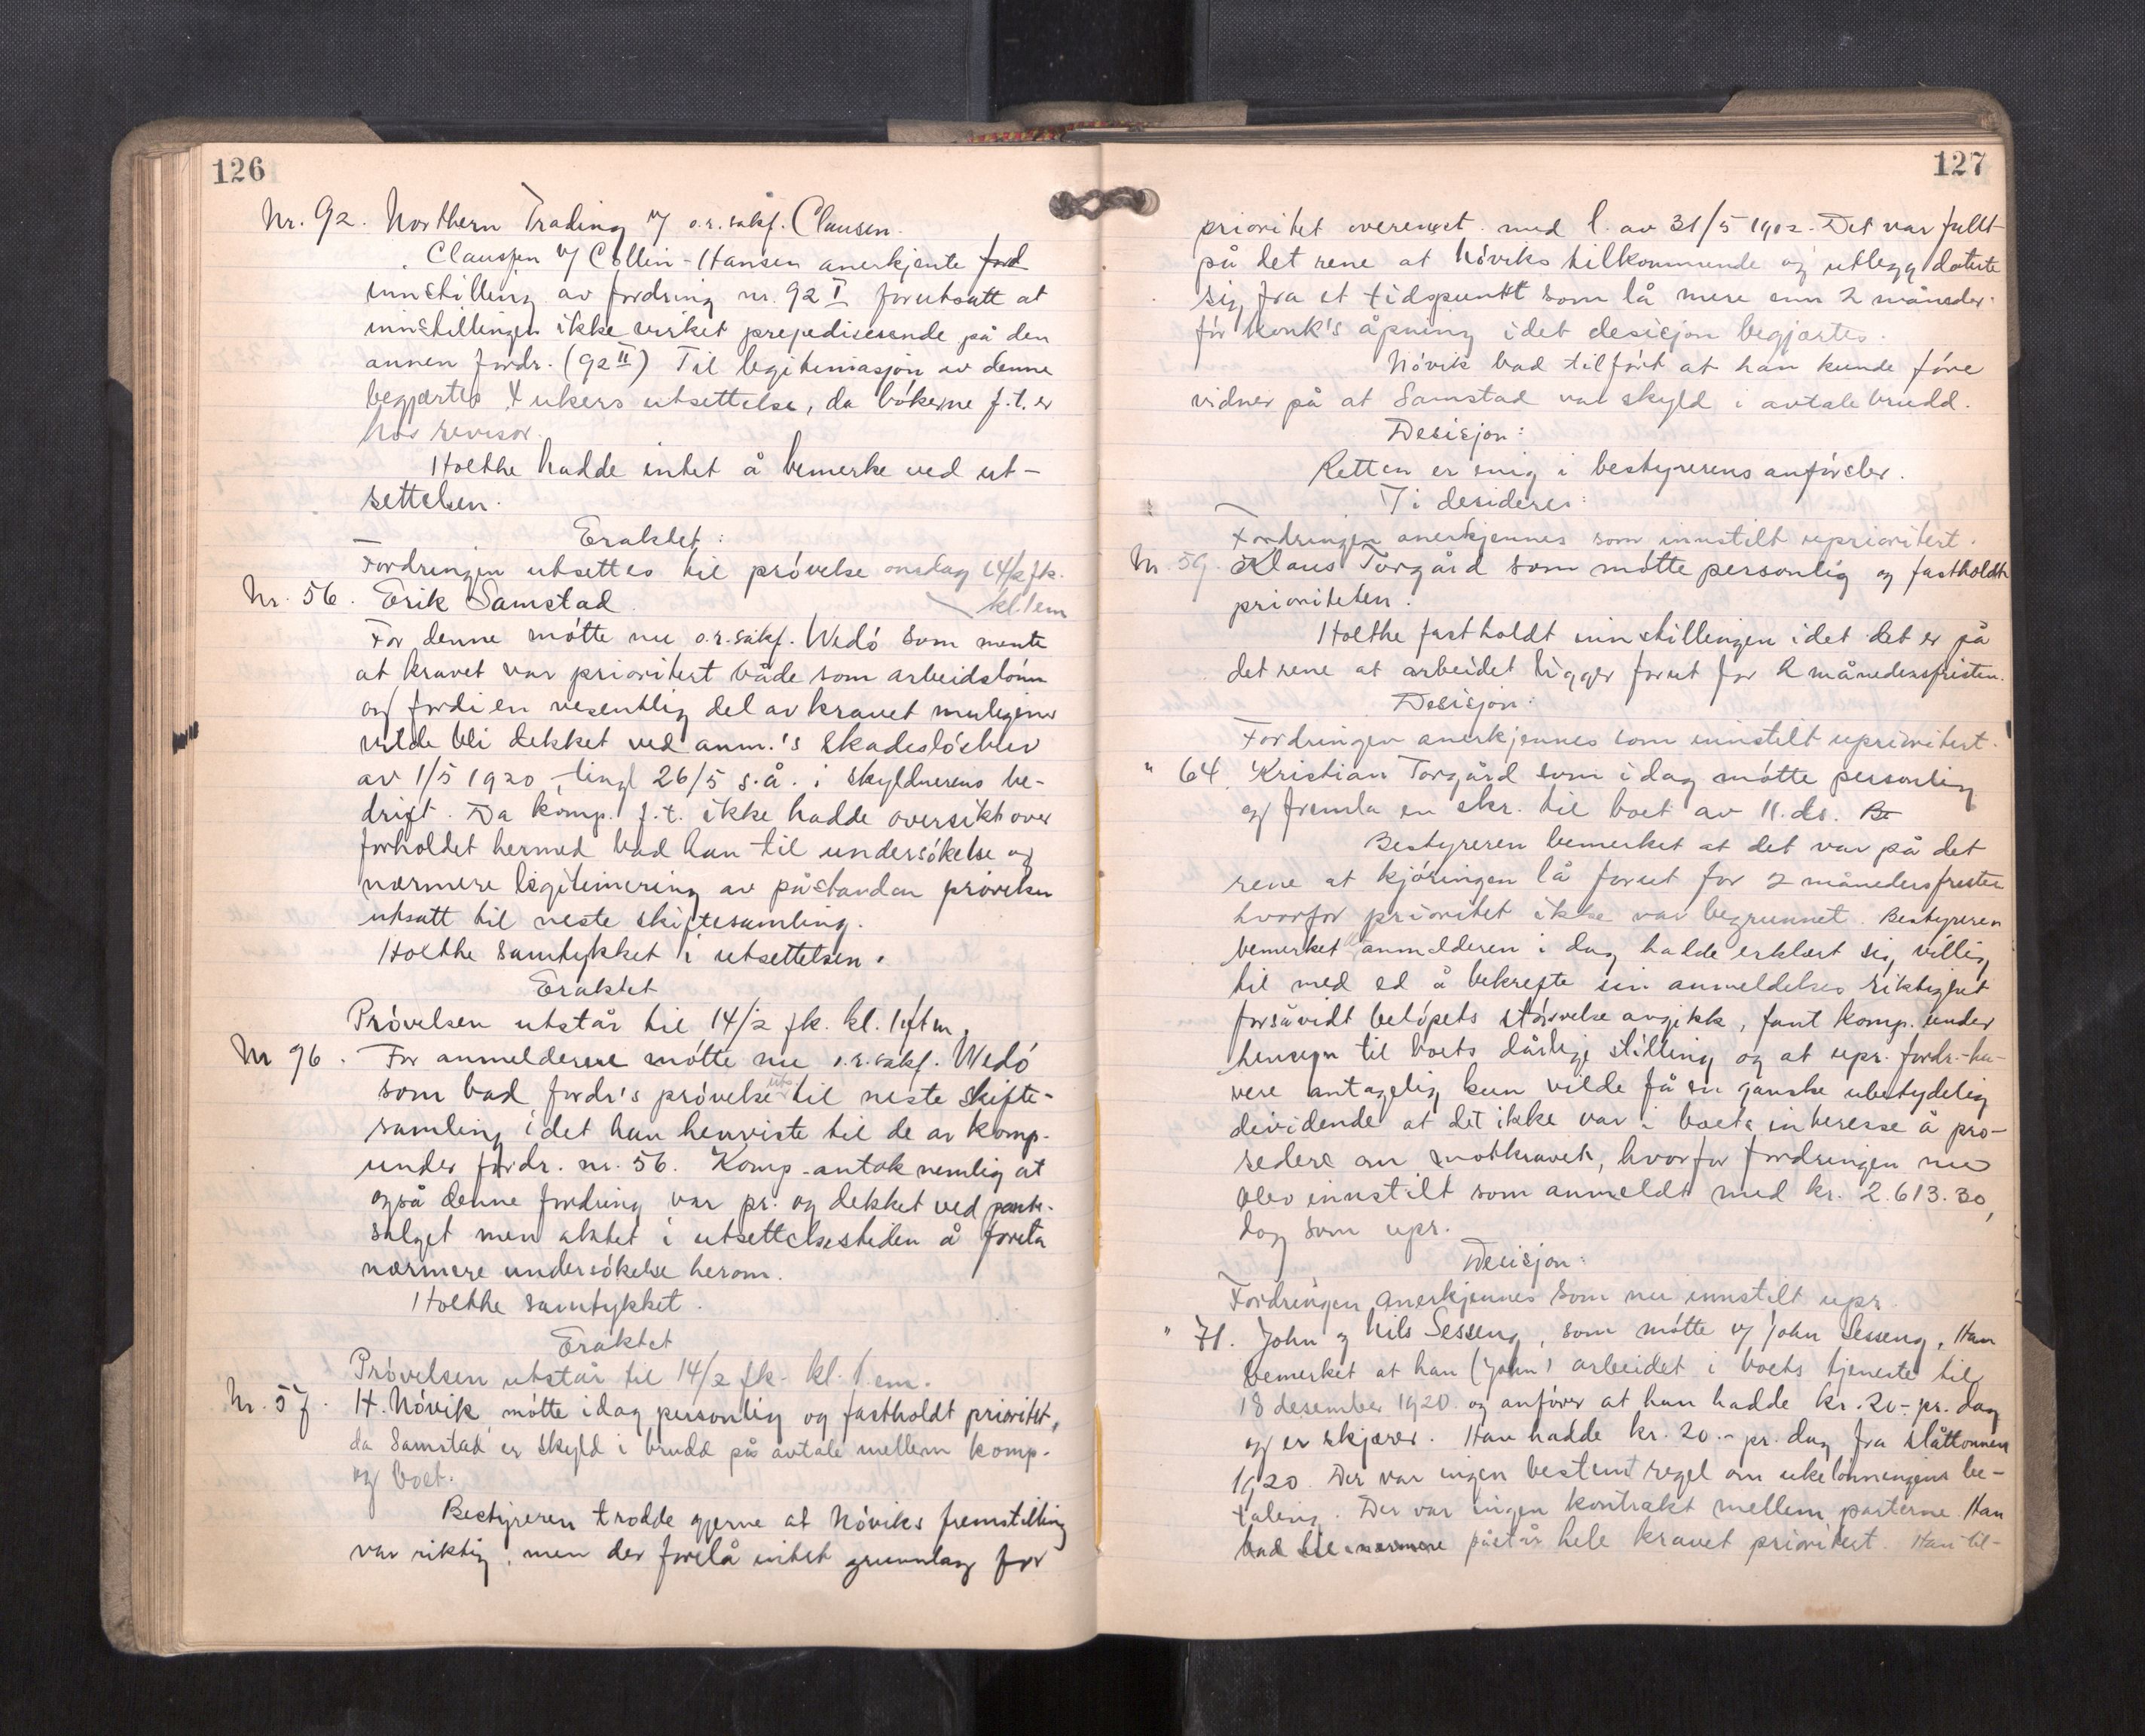 126
Nr. 92. Northern Trading v/ o.r.sakf. Clausen.
Claussen v/ Collin-Hansen anerkjente ford
innstilling av fordring nr. 92 I forutsatt at
innstillingen ikke virket prejudiserende på den
annen fordr. (92 II) Til legitimasjon av denne
begjærtes 4 ukers utsettelse, da bökerne f.t. er
hos revisor.
Holthe hadde intet å bemerke ved ut-
settelsen.
Eraktet:
Fordringen utsettes til prövelse onsdag 14/2 fk.
kl. 1 em
Nr. 56. Erik Samstad.
For denne mötte nu o.r.sakf. Wedö som mente
at kravet var prioritert både som arbeidslönn
og fordi en vesentlig del av kravet muligens
vilde bli dekket ved anm.'s skadeslösbrev
av 1/5 1920, tingl 26/5 s.å. i skyldnerens be-
drift. Da komp. f.t. ikke hadde oversikt over
forholdet hermed bad han til undersökelse og
nærmere legitimering av påstanden prövelsen
utsatt til neste skiftesamling.
Holthe samtykket i utsettelsen.
Eraktet
Prövelsen utstår til 14/2 fk. kl. 1 eftm.
Nr 96. For anmelderne mötte nu o.r.sakf. Wedö
som bad fordr's prövelse uts. til neste skifte-
samling idet han henviste til de av komp.
under fordr. nr. 56. Komp. antok nemlig at
også denne fordring var pr. og dekket ved pante-
salget men aktet i utsettelsestiden å foreta
nærmere undersökelse herom.
Holthe samtykket.
Eraktet
Prövelsen utstår til 14/2 fk. kl. 1 em.
Nr. 57. H. Növik mötte idag personlig og fastholdt prioritet,
da Samstad er skyld i brudd på avtale mellem komp.
og boet.
Bestyreren trodde gjerne at Növiks fremstilling
var riktig, men der forelå intet grunnlag for
127
prioritet overenst. med l. av 31/5 1902. Det var fullt
på det rene at Növiks tilkommende og utlegg daterte
sig fra et tidspunkt som lå mere enn 2 måneder
för konk's åpning idet desisjon begjærtes.
Növik bad tilfört at han kunde före
vidner på at Samstad var skyld i avtalebrudd.
Desisjon:
Retten er enig i bestyrerens anförsler.
Ti desideres:
Fordringen anerkjennes som innstilt uprioritert.
Nr. 59. Klaus Torgård som mötte personlig og fastholdt
prioriteten.
Holthe fastholdt innstillingen idet det er på
det rene at arbeidet ligger forut for 2 månedersfristen.
Desisjon:
Fordringen anerkjennes som innstilt uprioritert.
" 64. Kristian Torgård som idag mötte personlig
og fremla en skr. til boet av 11. ds. Be
Bestyreren bemerket at det var på det
rene at kjöringen lå forut for 2 månedersfristen
hvorfor prioritet ikke var begrunnet. Bestyreren
bemerket anmelderen i dag hadde erklært sig villig
til med ed å bekrefte sin anmeldelses riktighet
forsåvidt belöpets störrelse angikk, fant komp. under
hensyn til boets dårlige stilling og at upr. fordr.-ha-
vere antagelig kun vilde få en ganske ubetydelig
dividende at det ikke var i boets interesse å pro-
sedere om motkravet, hvorfor fordringen nu
blev innstilt som anmeldt med kr. 2.613.30,
dog som upr.
Desisjon:
Fordringen anerkjennes som nu innstilt upr.
" 71. John og Nils Sesseng, som mötte v/ John Sesseng. Han
bemerket at han (John) arbeidet i boets tjeneste til
18 desember 1920 og anförer at han hadde kr. 20.- pr. dag
og er skjærer. Han hadde kr. 20.- pr. dag fra slåttonnen
1920. Der var ingen bestemt regel om ukelönningens be-
taling. Der var ingen kontrakt mellem parterne. Han
bad påstår hele kravet prioritert. Han til-